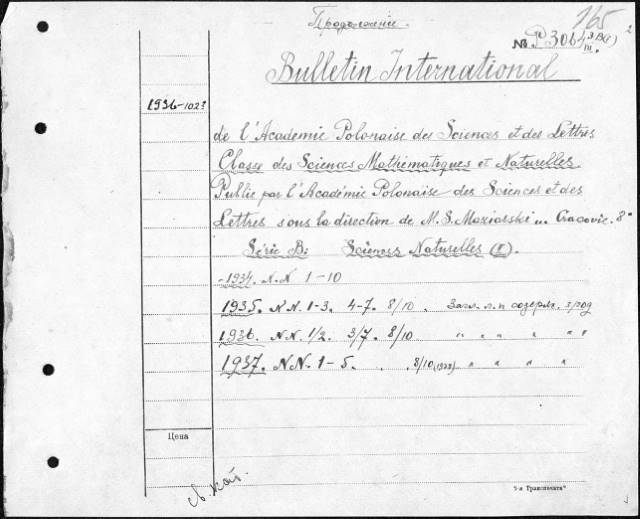 Продолжение.
165
№ P 3064 3B(a) III. 2
Bulletin International
1936-1023
de l'Académie Polonaise des Sciences et des Lettres
Classe des Sciences Mathématiques et Naturelles
Publié par l'Académie Polonaise des Sciences et des
Lettres sous la direction de M. S. Maziarski... Cracovie. 8°
Série B: Sciences Naturelles (I).
-1934. N.N 1-10
1935. NN. 1-3. 4-7. 8/10 . Загл. л. и содерж. з/год
1936. NN. 1/2. 3/7. 8/10 " " " " " "
1937. NN. 1-5. . . 8/10 (1938) " " " " "
Цена
св. кат.
"5-я Транспечать"